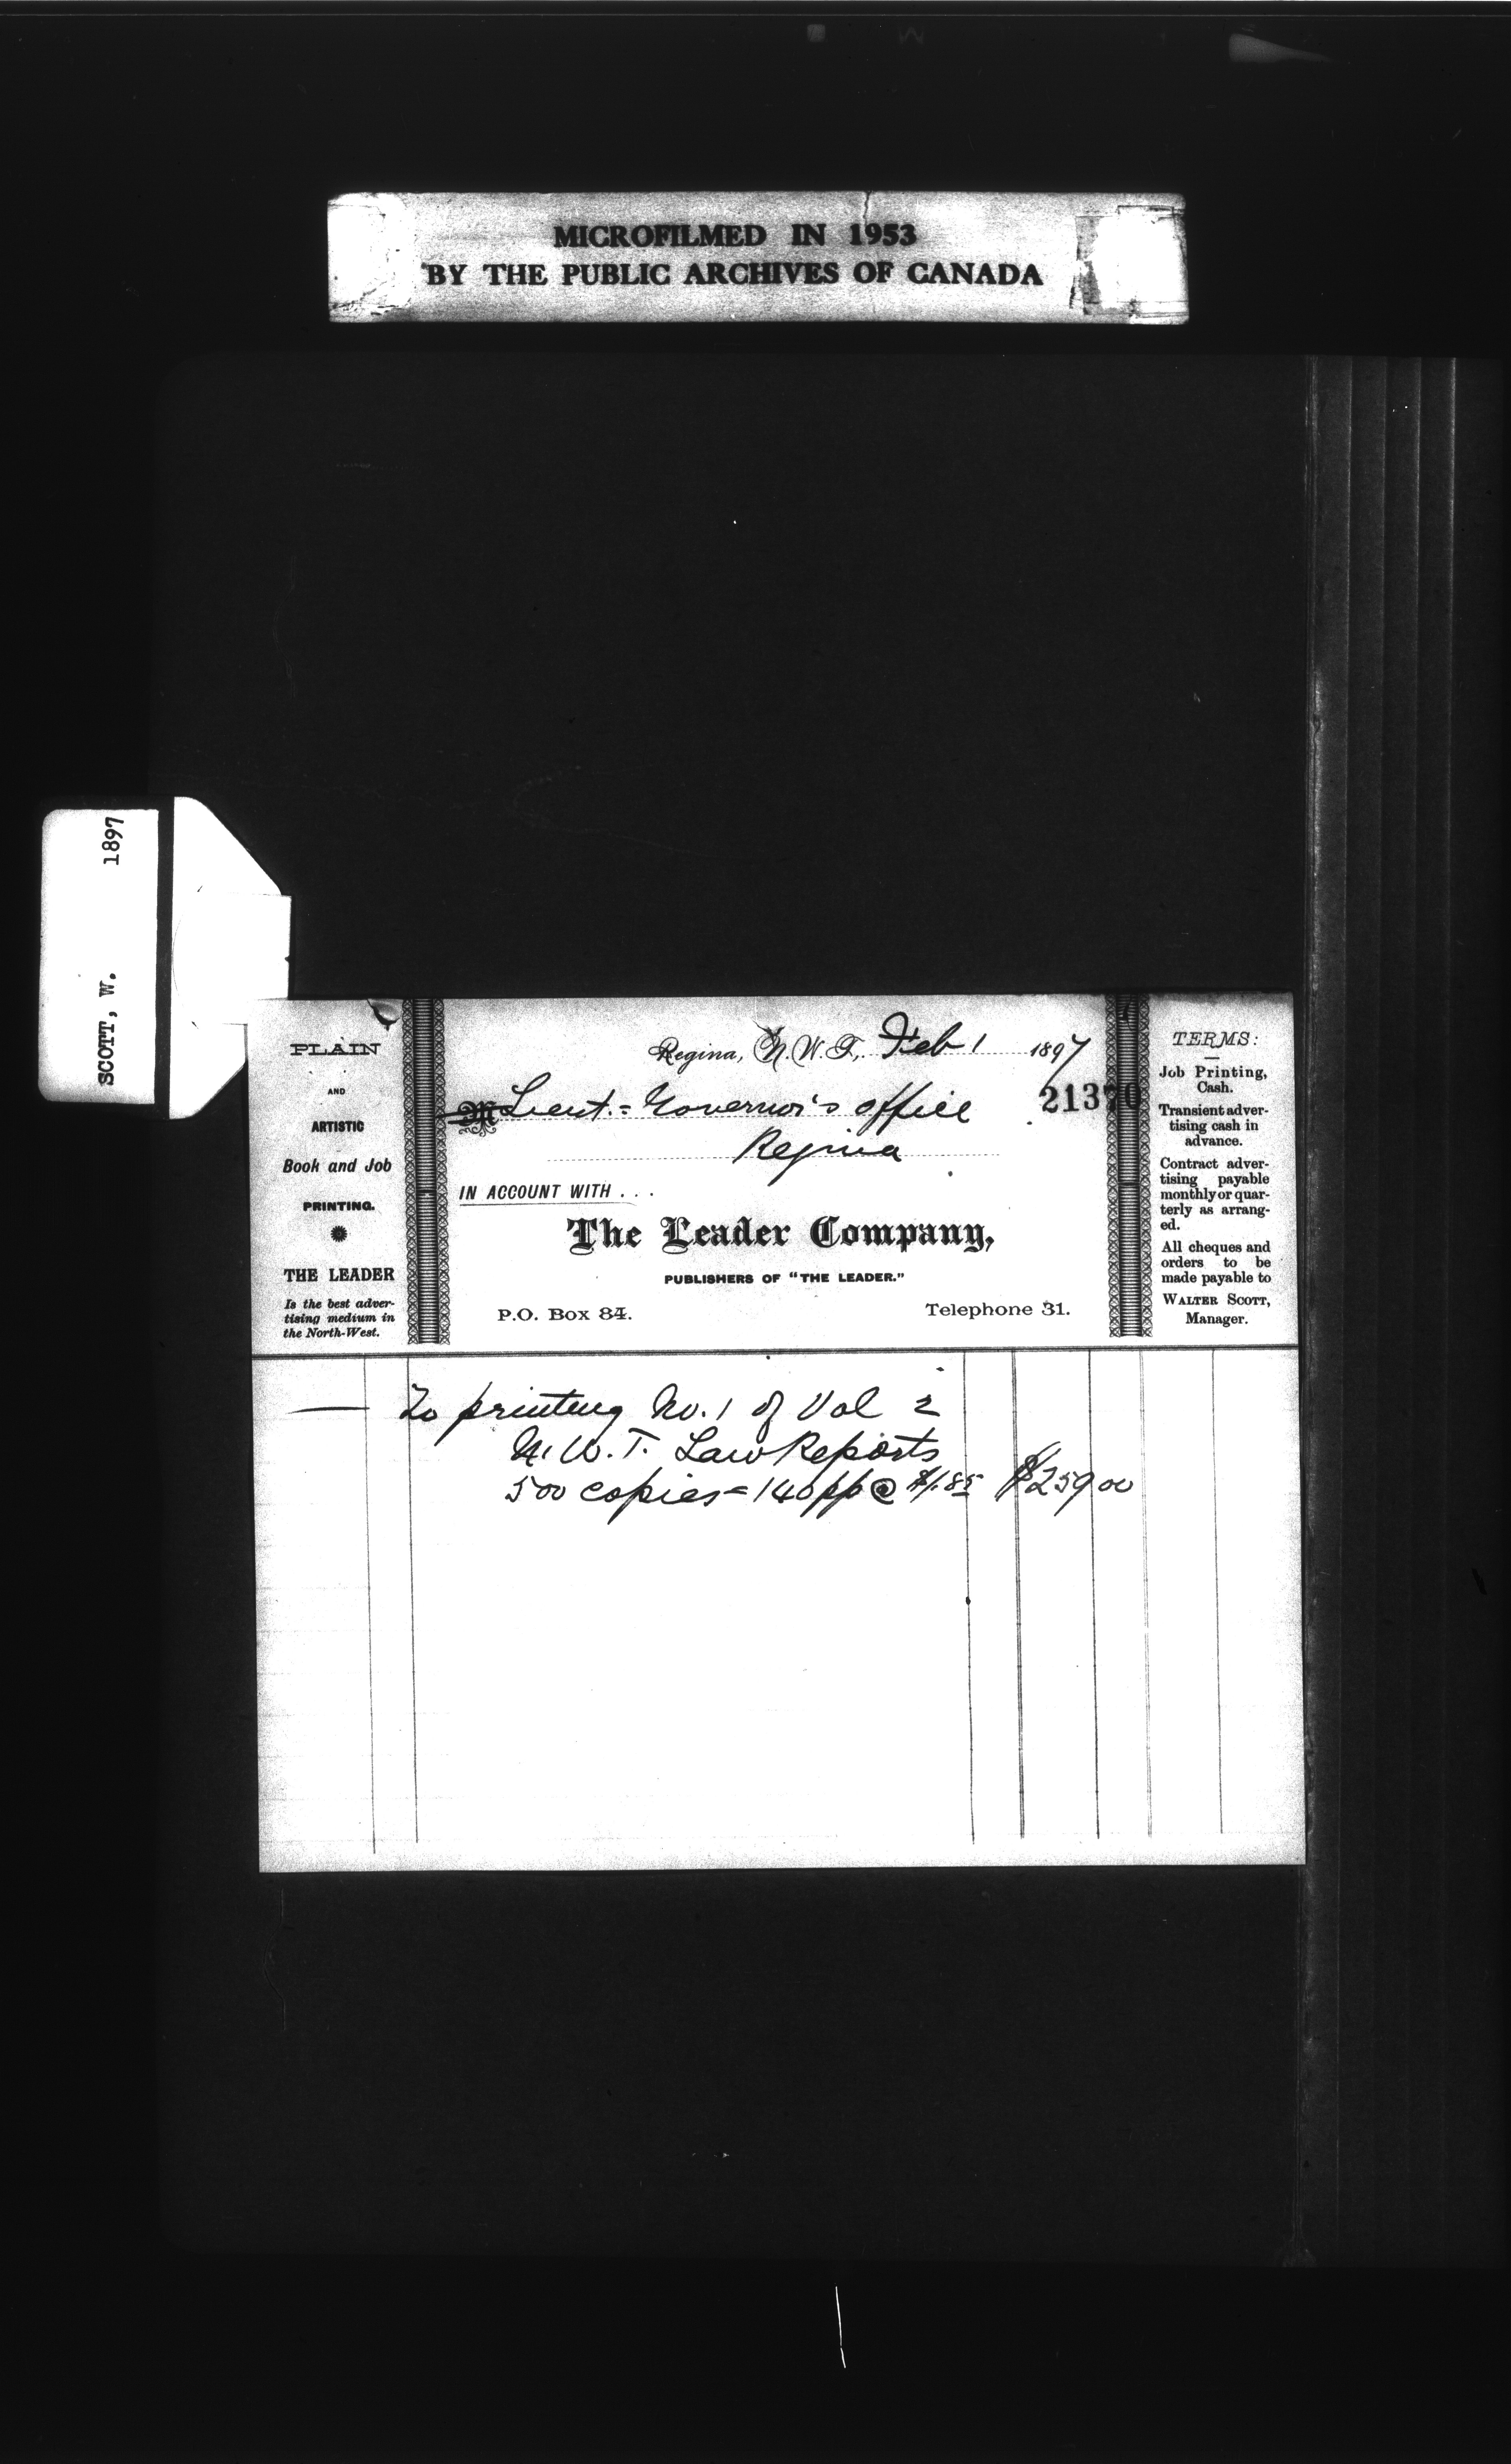 MICROFILMED IN 1953
BY THE PUBLIC ARCHIVES OF CANADA
SCOTT, W. 1897
PLAIN
AND
ARTISTIC
Book and Job
PRINTING.
THE LEADER
Is the best adver-
tising medium in
the North-West.
Regina, N. W. T., Feb 1 1897
21370
M Lieut.= Governor's office
Regina
IN ACCOUNT WITH . . .
The Leader Company,
PUBLISHERS OF "THE LEADER."
P.O. Box 84. Telephone 31.
TERMS:
Job Printing,
Cash.
Transient adver-
tising cash in
advance.
Contract adver-
tising payable
monthly or quar-
terly as arrang-
ed.
All cheques and
orders to be
made payable to
WALTER SCOTT,
Manager.
To printing No. 1 of Vol 2
N. W. T. Law Reports
500 copies = 140 pp @ $1.85 $259 00